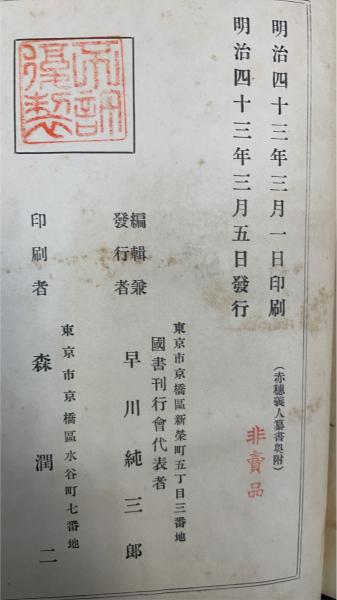 明治四十三年三月一日印刷
明治四十三年三月五日發行
（赤穗義人纂書奥附）
非賣品
東京市京橋區新榮町五丁目三番地
國書刊行會代表者
編輯兼
發行者
早川純三郎
東京市京橋區水谷町七番地
印刷者
森潤二
不許
複製